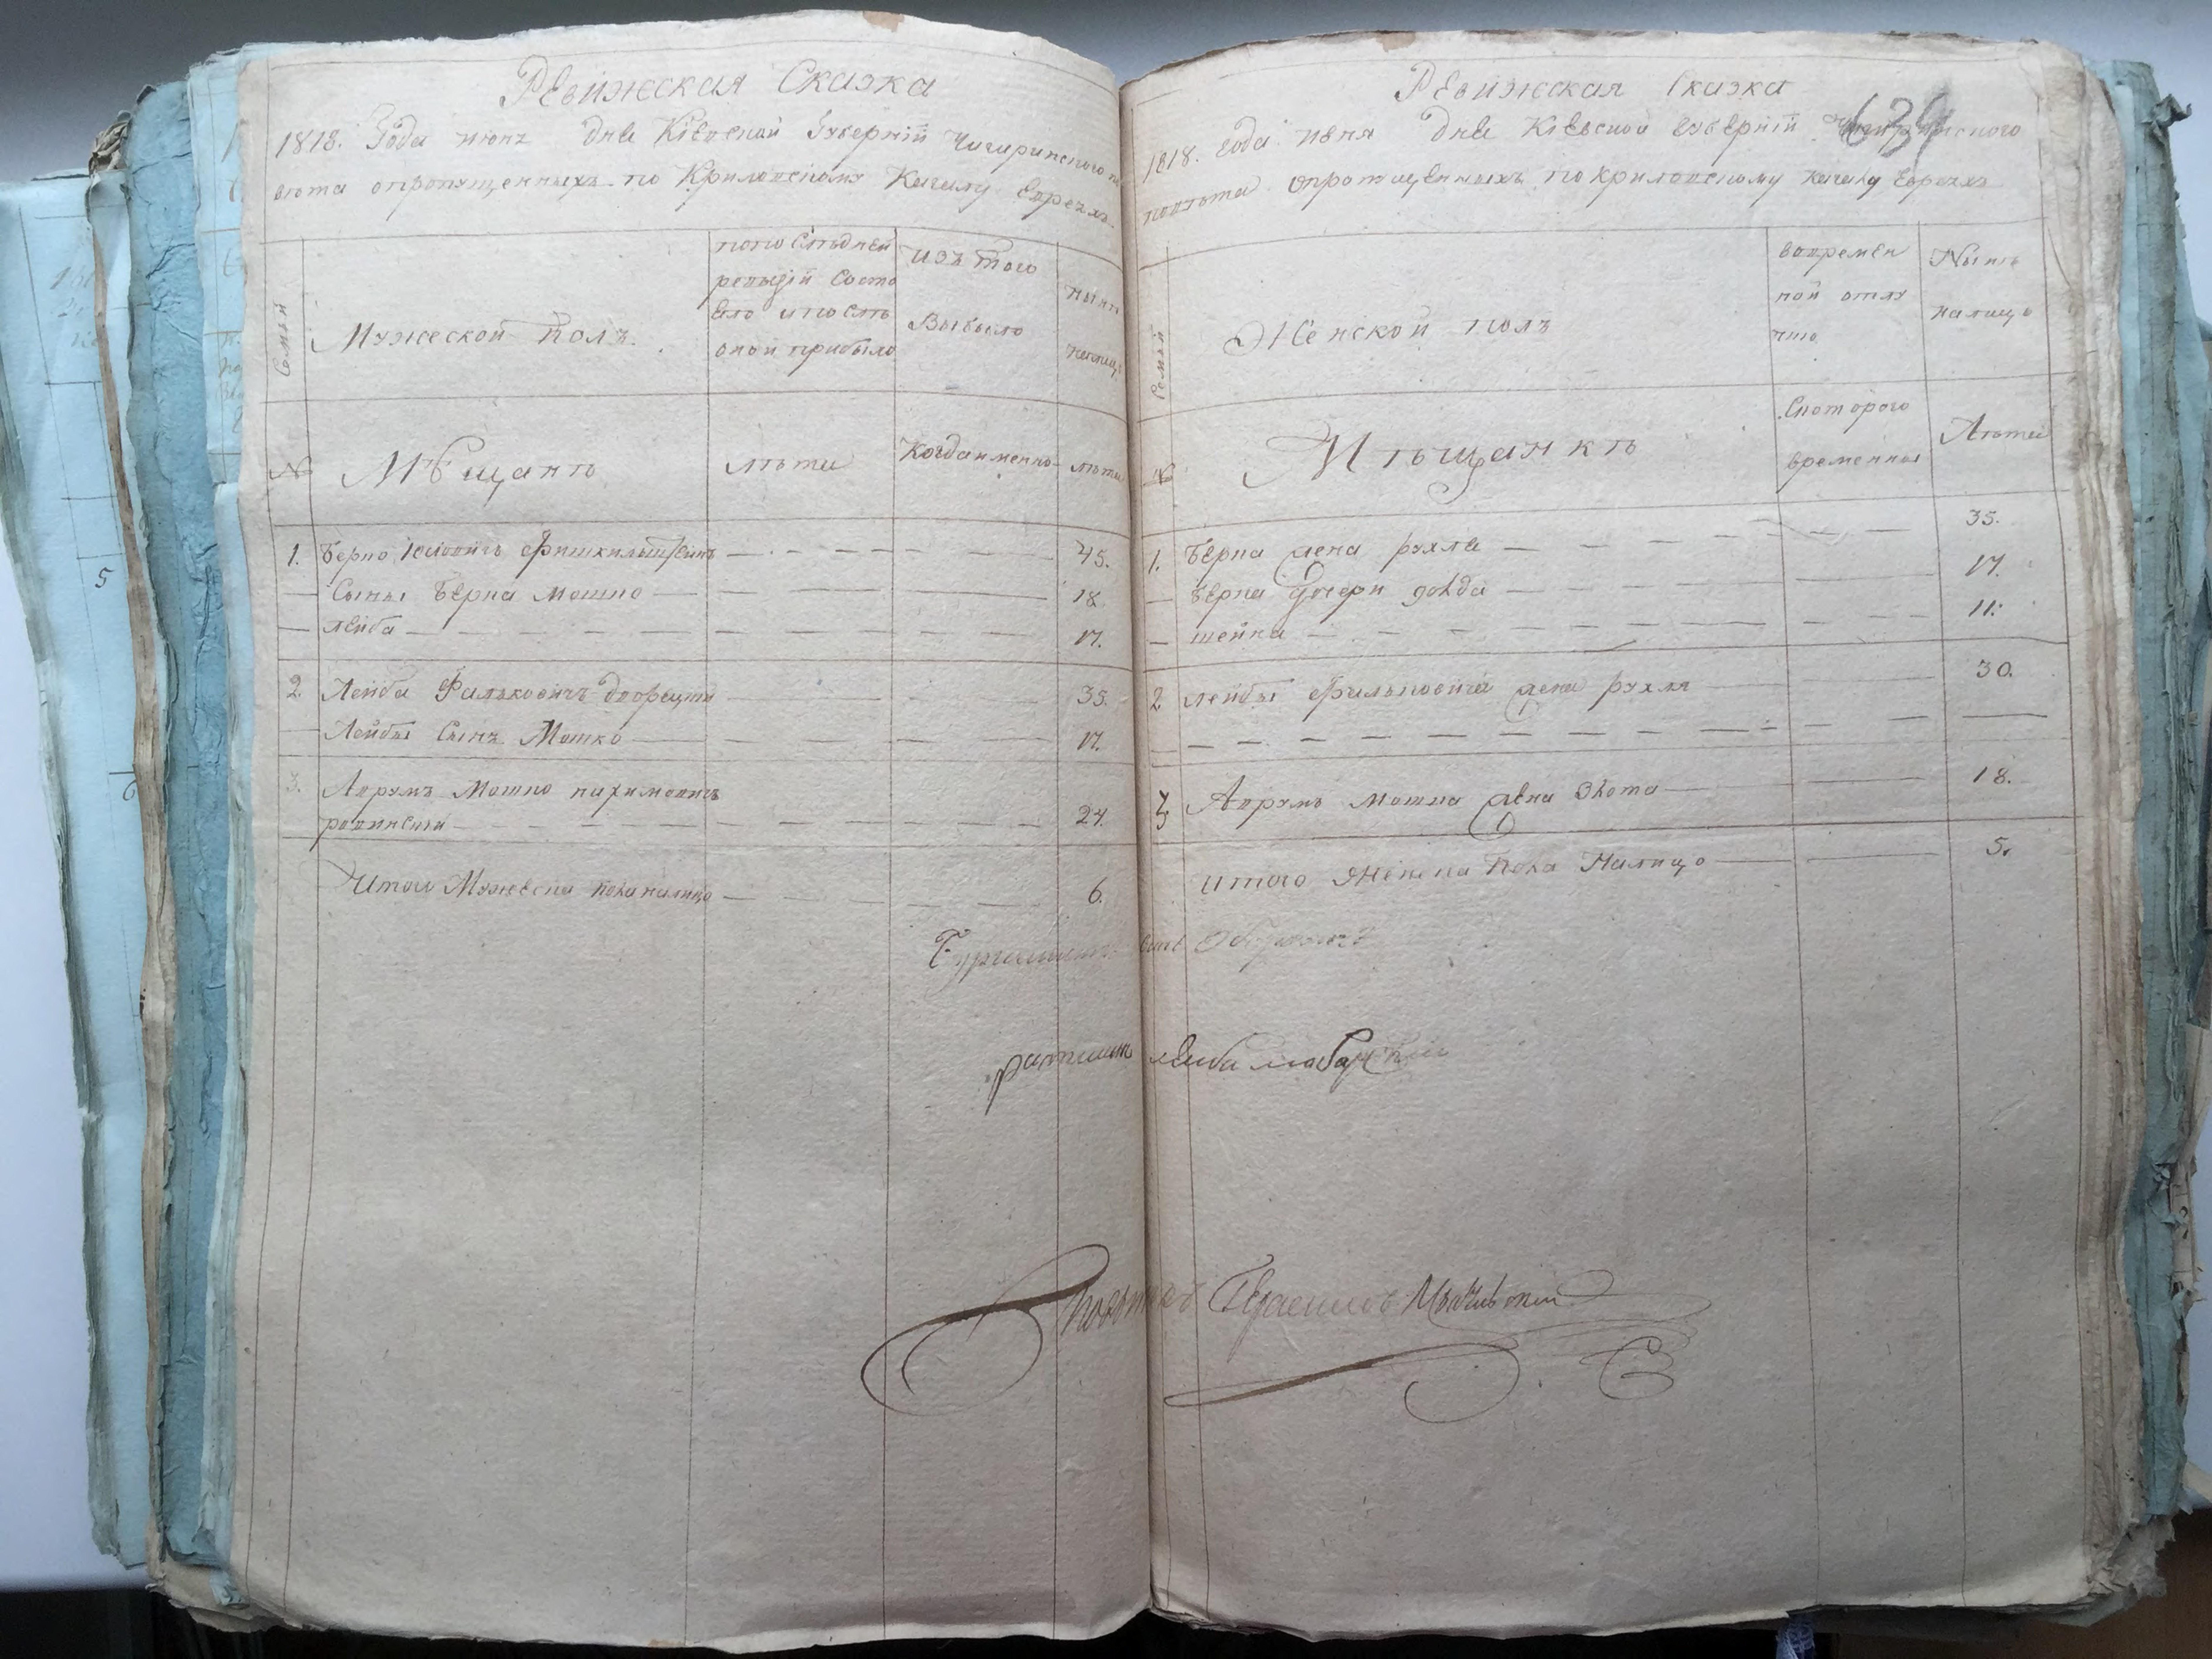 Ревижская Сказка
1818. Года июня дня Кіевской Губерніи Чигиринского по
вета опропущенныхъ по Криловскому Кагалу Евреяхъ
Семьи
Мужеской полъ.
попоследней
ревизіи состо
яло ипосль
оной прибыло
изъ того
Выбыло
ныне
налицо
№
Мѣщанѣ
лѣта
Когда именно
лѣта
1. Берко Иосіовичъ 45.
Сыны Берка Мошко 18
Лейба 17.
2. Лейба Фальковичъ 35.
Лейбы Сынъ Мошко 17.
3. Аврумъ Мошко Нахимовичъ
24.
Итого Мужеска пола налицо 6.
Ревижская Сказка
634
1818. Года июня дня Кіевской Губерніи Чигиринского
повѣта опропущенныхъ по Криловскому Кагалу Евреяхъ
Семьи
Женской полъ
вовремен
ной отлу
чке
Нынѣ
налицо
№
Мѣщанкѣ
Скоторого
времены
Лѣта
1. Берка жена рухля 35.
Берка дочери 17.
шейна 11.
2. Лейбы Фальковича жена рухля 30.
3. Аврумъ Мошка жена 18.
Итого Женска пола Налицо 5.
Ратманъ Лейба